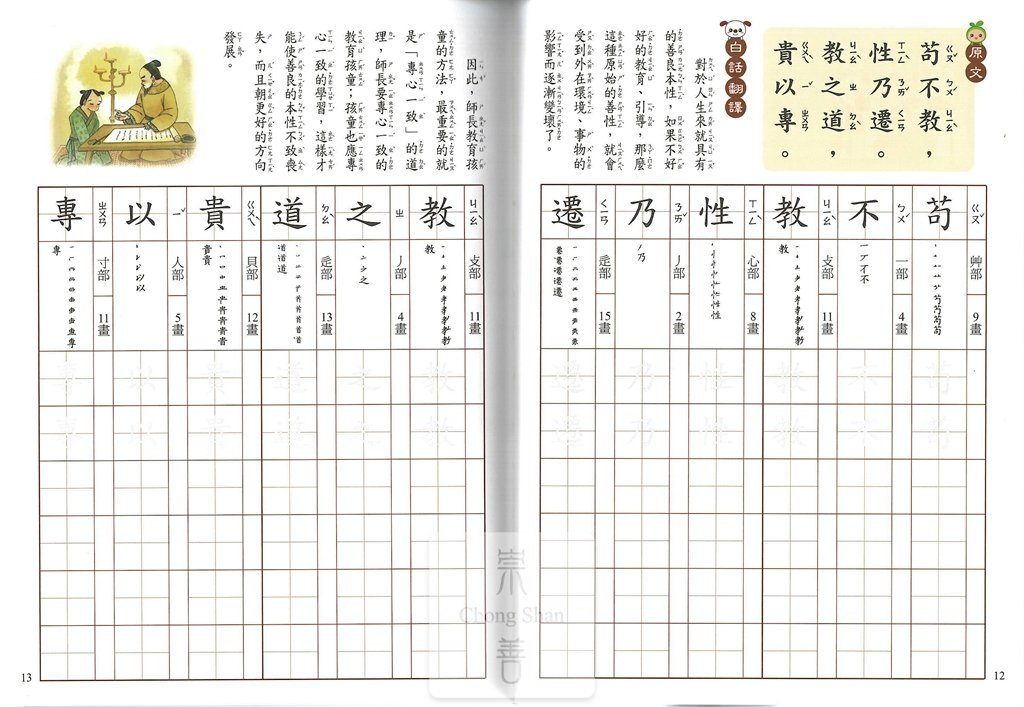 原文
苟不教，
性乃遷。
教之道，
貴以專。
白話翻譯
對於人生來就具有
的善良本性，如果不好
好的教育、引導，那麼
這種原始的善性，就會
受到外在環境、事物的
影響而逐漸變壞了。
苟 ㄍㄡˇ 艸部 9畫
不 ㄅㄨˋ 一部 4畫
教 ㄐㄧㄠˋ 攴部 11畫
性 ㄒㄧㄥˋ 心部 8畫
乃 ㄋㄞˇ 丿部 2畫
遷 ㄑㄧㄢ 辵部 15畫
12
因此，師長教育孩
童的方法，最重要的就
是「專心一致」的道
理，師長要專心一致的
教育孩童，孩童也應專
心一致的學習，這樣才
能使善良的本性不致喪
失，而且朝更好的方向
發展。
教 ㄐㄧㄠˋ 攴部 11畫
之 ㄓ 丿部 4畫
道 ㄉㄠˋ 辵部 13畫
貴 ㄍㄨㄟˋ 貝部 12畫
以 ㄧˇ 人部 5畫
專 ㄓㄨㄢ 寸部 11畫
13
崇
Chong Shan
善